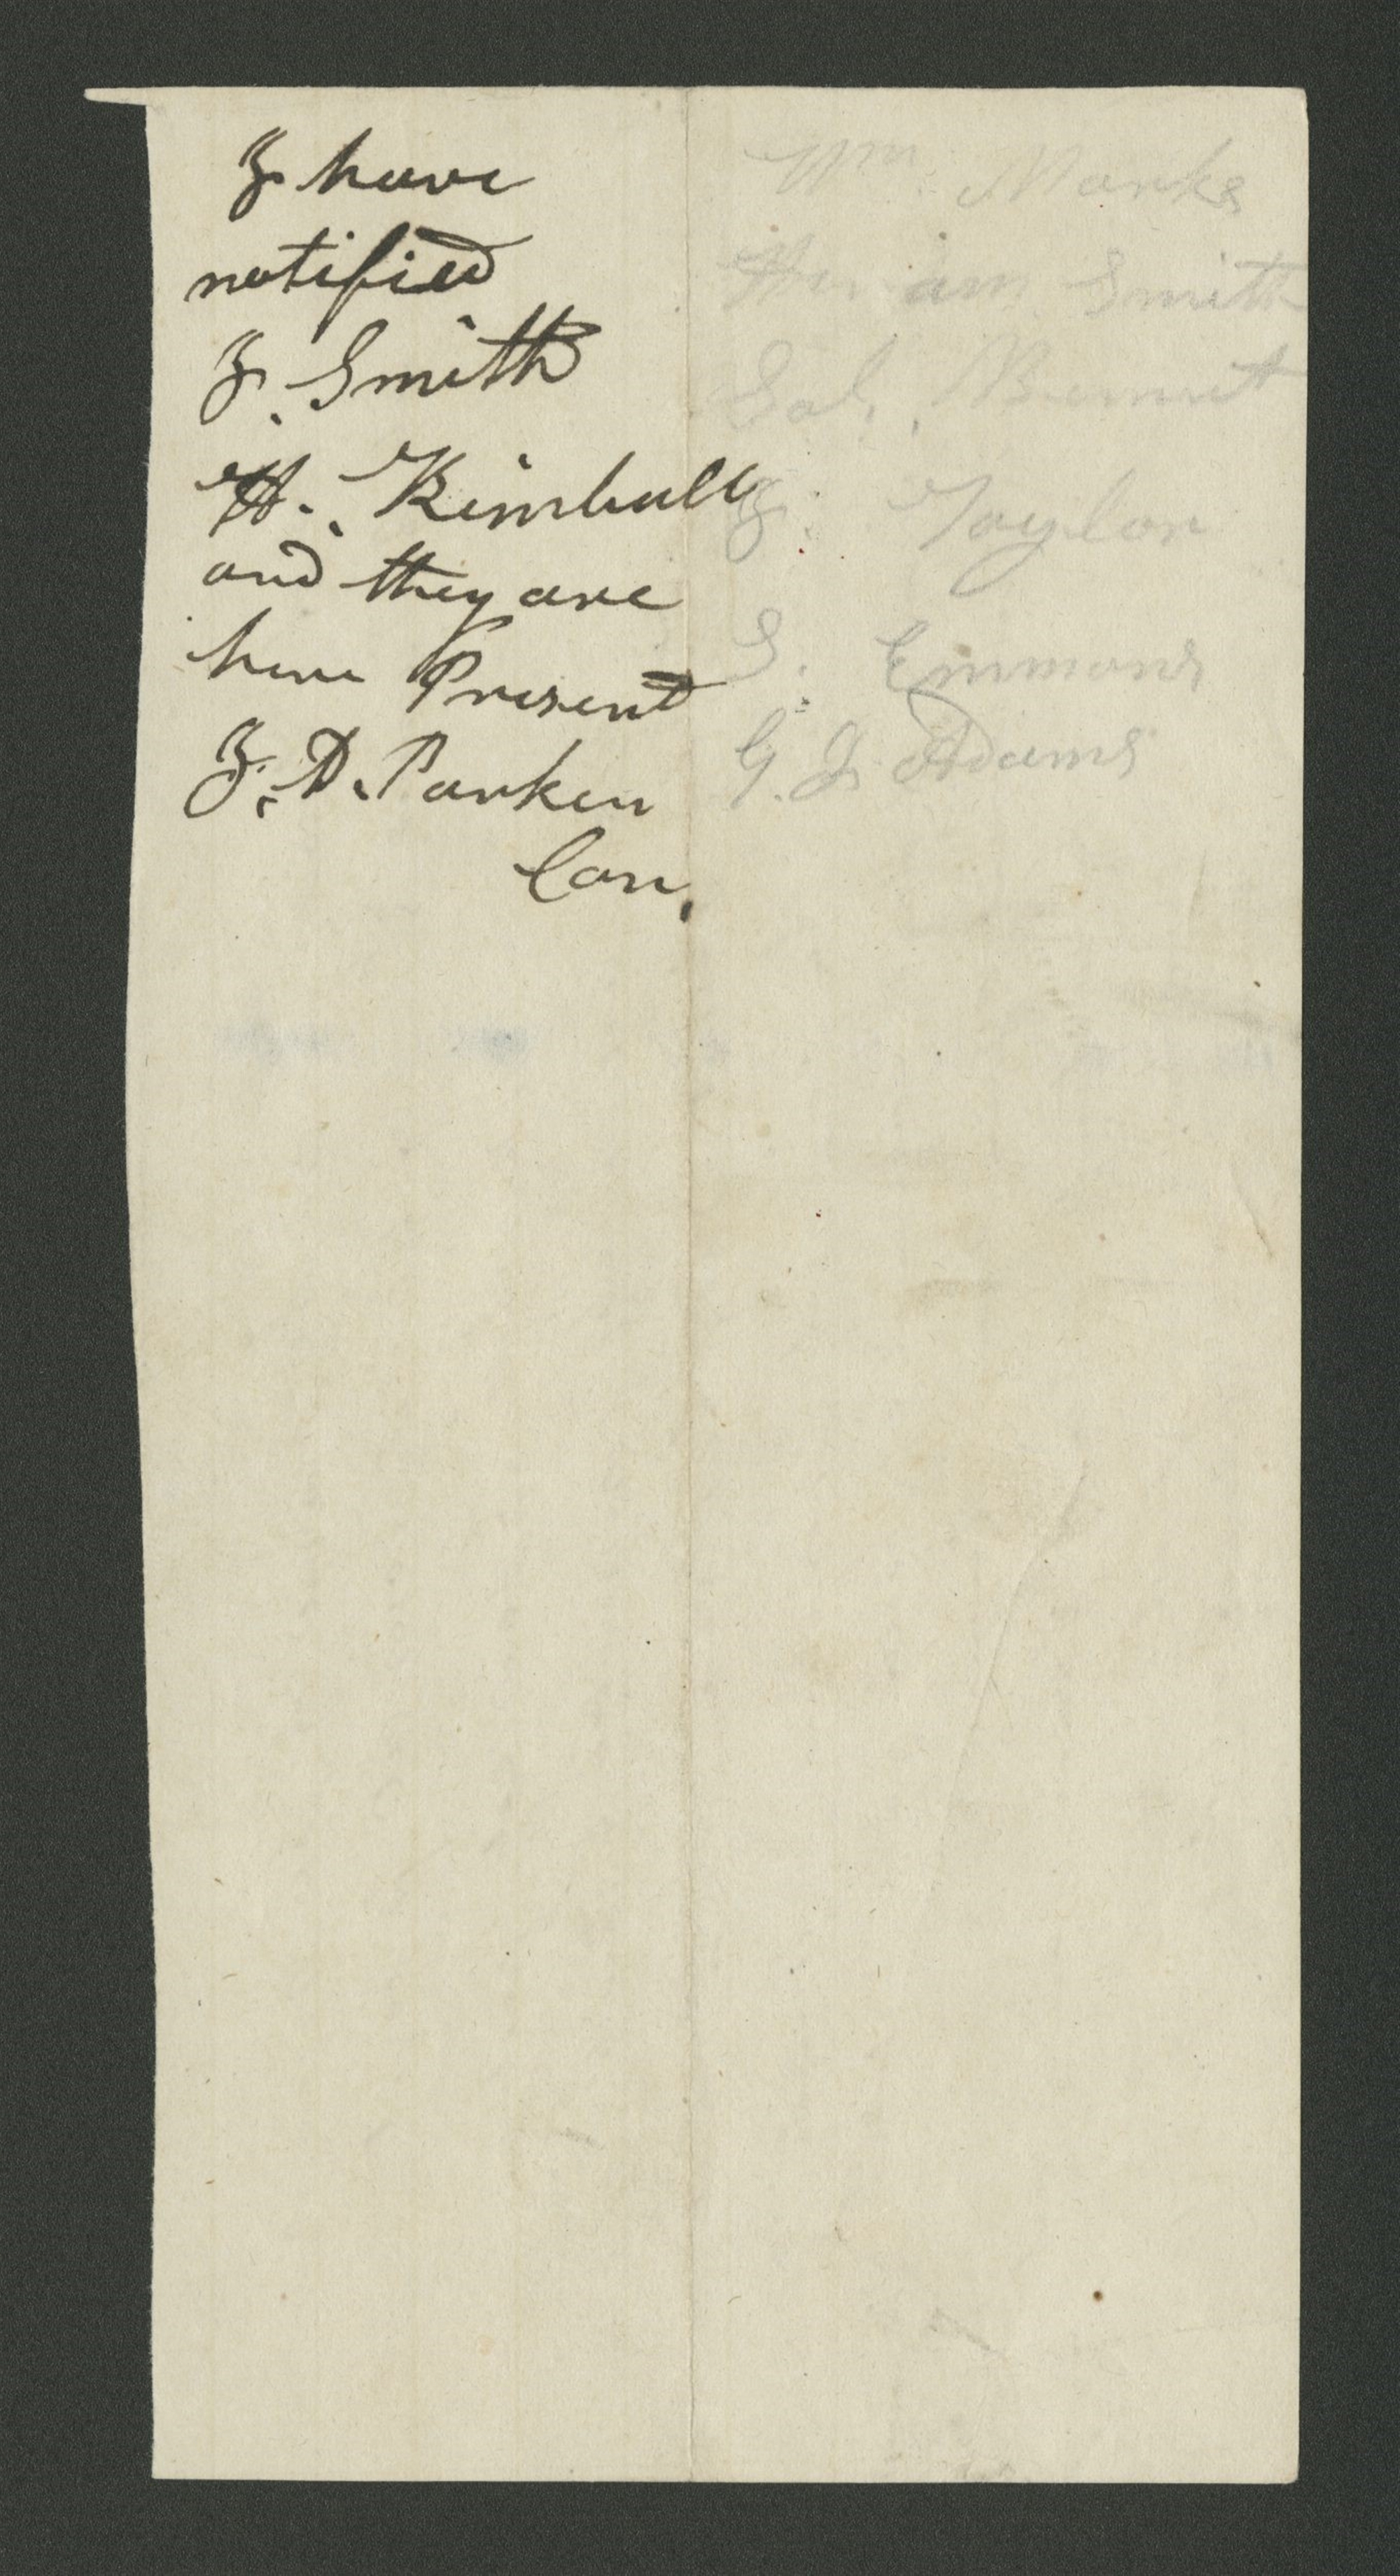 I have
notified
J. Smith
H. Kimball
and they are
here Present
J. D. Parker
Con.
Wm Marks
Hiram Smith
Sal. Bennet
J. Taylor
S. Emmons
G. J. Adams